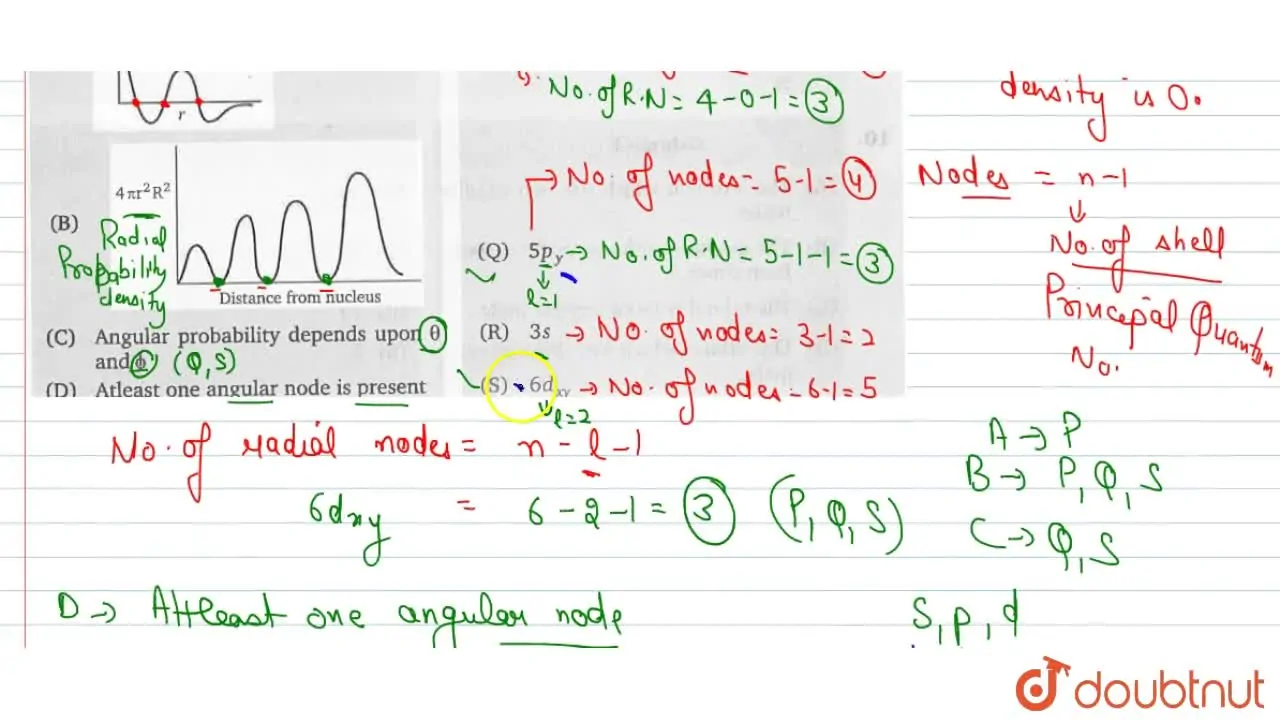 No. of R.N = 4-0-1 = 3
density is 0.
r
4πr²R²
(B)
Radial
Probability
density
Distance from nucleus
→ No. of nodes = 5-1 = 4
Nodes = n-1
(Q) 5p_y → No. of R.N = 5-1-1 = 3
l=1
No. of shell
Principal Quantum
No.
(C) Angular probability depends upon θ
and ϕ (Q,S)
(R) 3s → No. of nodes = 3-1=2
(D) Atleast one angular node is present
(S) 6d_xy → No. of nodes = 6-1=5
l=2
No. of radial nodes = n-l-1
6dxy = 6-2-1 = 3 (P,Q,S)
A → P
B → P, Q, S
C → Q, S
D → Atleast one angular node
S, p, d
doubtnut